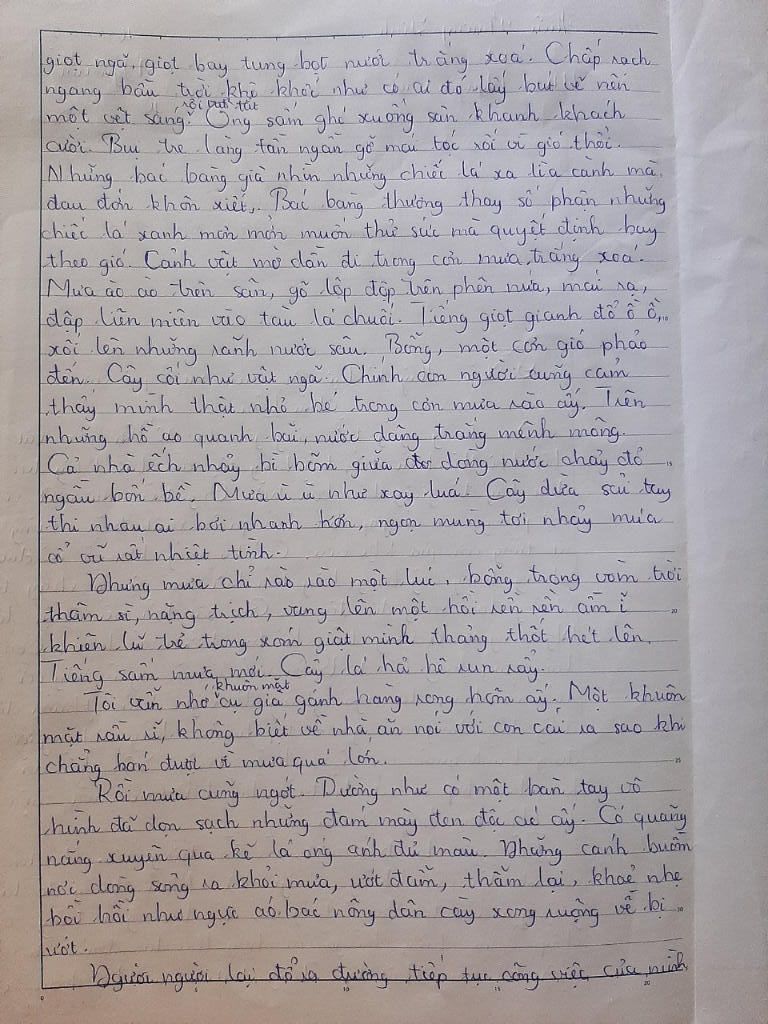 giọt ngã, giọt bay tung bọt nước trắng xoá. Chấp rạch
ngang bầu trời khô khốc như có ai đó lấy bút vẽ nên
rồi vụt tắt
một vệt sáng. Ông sấm ghé xuống sân khanh khách
cười. Bụi tre làng tần ngần gỡ mái tóc rối vì gió thổi.
Những bác bàng già nhìn những chiếc lá xa lìa cành mà
đau đớn khôn xiết. Bác bàng thương thay số phận những
chiếc lá xanh mơn mởn muốn thử sức mà quyết định bay
theo gió. Cảnh vật mờ dần đi trong cơn mưa trắng xoá.
Mưa ào ào trên sân, gõ lộp độp trên phên nứa, mái rạ,
đập liên miên vào tàu lá chuối. Tiếng giọt gianh đổ ồ ồ,
xối lên những rãnh nước sâu. Bỗng, một cơn gió phảo
đến. Cây cối như vật ngã. Chính con người cũng cảm
thấy mình thật nhỏ bé trong cơn mưa rào ấy. Trên
những hồ ao quanh bãi, nước dâng trắng mênh mông.
Cả nhà ếch nhảy bì bõm giữa dòng nước chảy đỏ
ngầu bốn bề. Mưa ù ù như xay lúa. Cây dừa sải tay
thi nhau ai bơi nhanh hơn, ngọn mùng tơi nhảy múa
cổ vũ rất nhiệt tình.
Nhưng mưa chỉ rào rào một lúc, bỗng trong vòm trời
thẫm sì, nặng trịch, vang lên một hồi rền rền ầm ĩ
khiến lũ trẻ trong xóm giật mình thảng thốt hét lên.
Tiếng sấm mưa mới. Cây lá hả hê run rẩy.
khuôn mặt
Tôi vẫn nhớ cụ già gánh hàng rong hôm ấy. Một khuôn
mặt rầu rĩ, không biết về nhà ăn nói với con cái ra sao khi
chẳng bán được vì mưa quá lớn.
Rồi mưa cũng ngớt. Dường như có một bàn tay vô
hình đã dọn sạch những đám mây đen độc ác ấy. Có quãng
nắng xuyên qua kẽ lá óng ánh đủ màu. Những cánh buồm
nơi dòng sông ra khỏi mưa, ướt đẫm, thẫm lại, khoẻ nhẹ
bồi hồi như ngực áo bác nông dân cày xong ruộng về bị
ướt.
Người người lại đổ ra đường tiếp tục công việc của mình